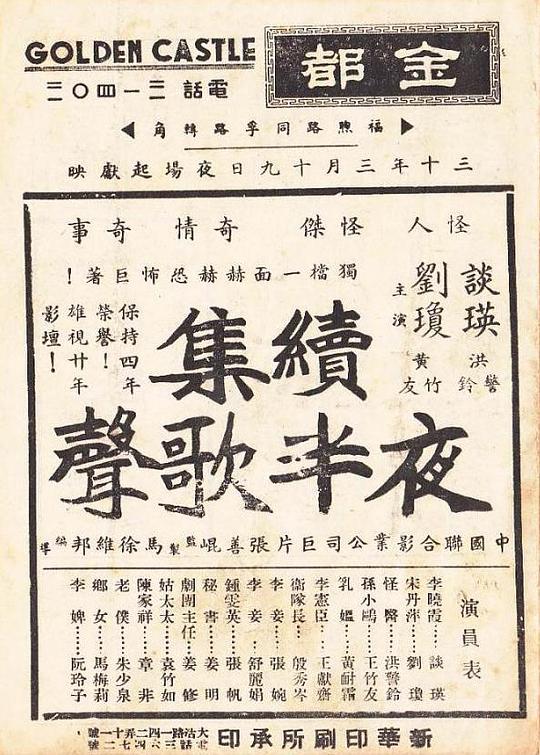 GOLDEN CASTLE
金都
電話
福煦路同孚路轉角
三十年三月十九日夜場起獻映
怪人 怪傑 奇情 奇事
獨擋一面赫赫恐怖巨著！
談瑛
洪警鈴
劉瓊
黃竹友
主演
保持四年
榮譽！
雄視廿年
影壇！
續集
夜半歌聲
中國聯合影業公司巨片張善崐監製馬徐維邦編導
演員表
李曉霞……談瑛
朱丹萍……劉瓊
怪醫……洪警鈴
孫小鷗……王竹友
乳媼……黃耐霜
李憲臣……王獻齋
衛隊長……殷秀岑
李妾……張婉
李妾……舒麗娟
鍾雯英……張帆
秘書……姜明
劇團主任……姜修
姑太太……袁竹如
陳家祥……章非
老僕……朱少泉
鄉女……馬梅莉
李婢……阮玲子
新華印刷所承印
大沽路一四二弄十一號